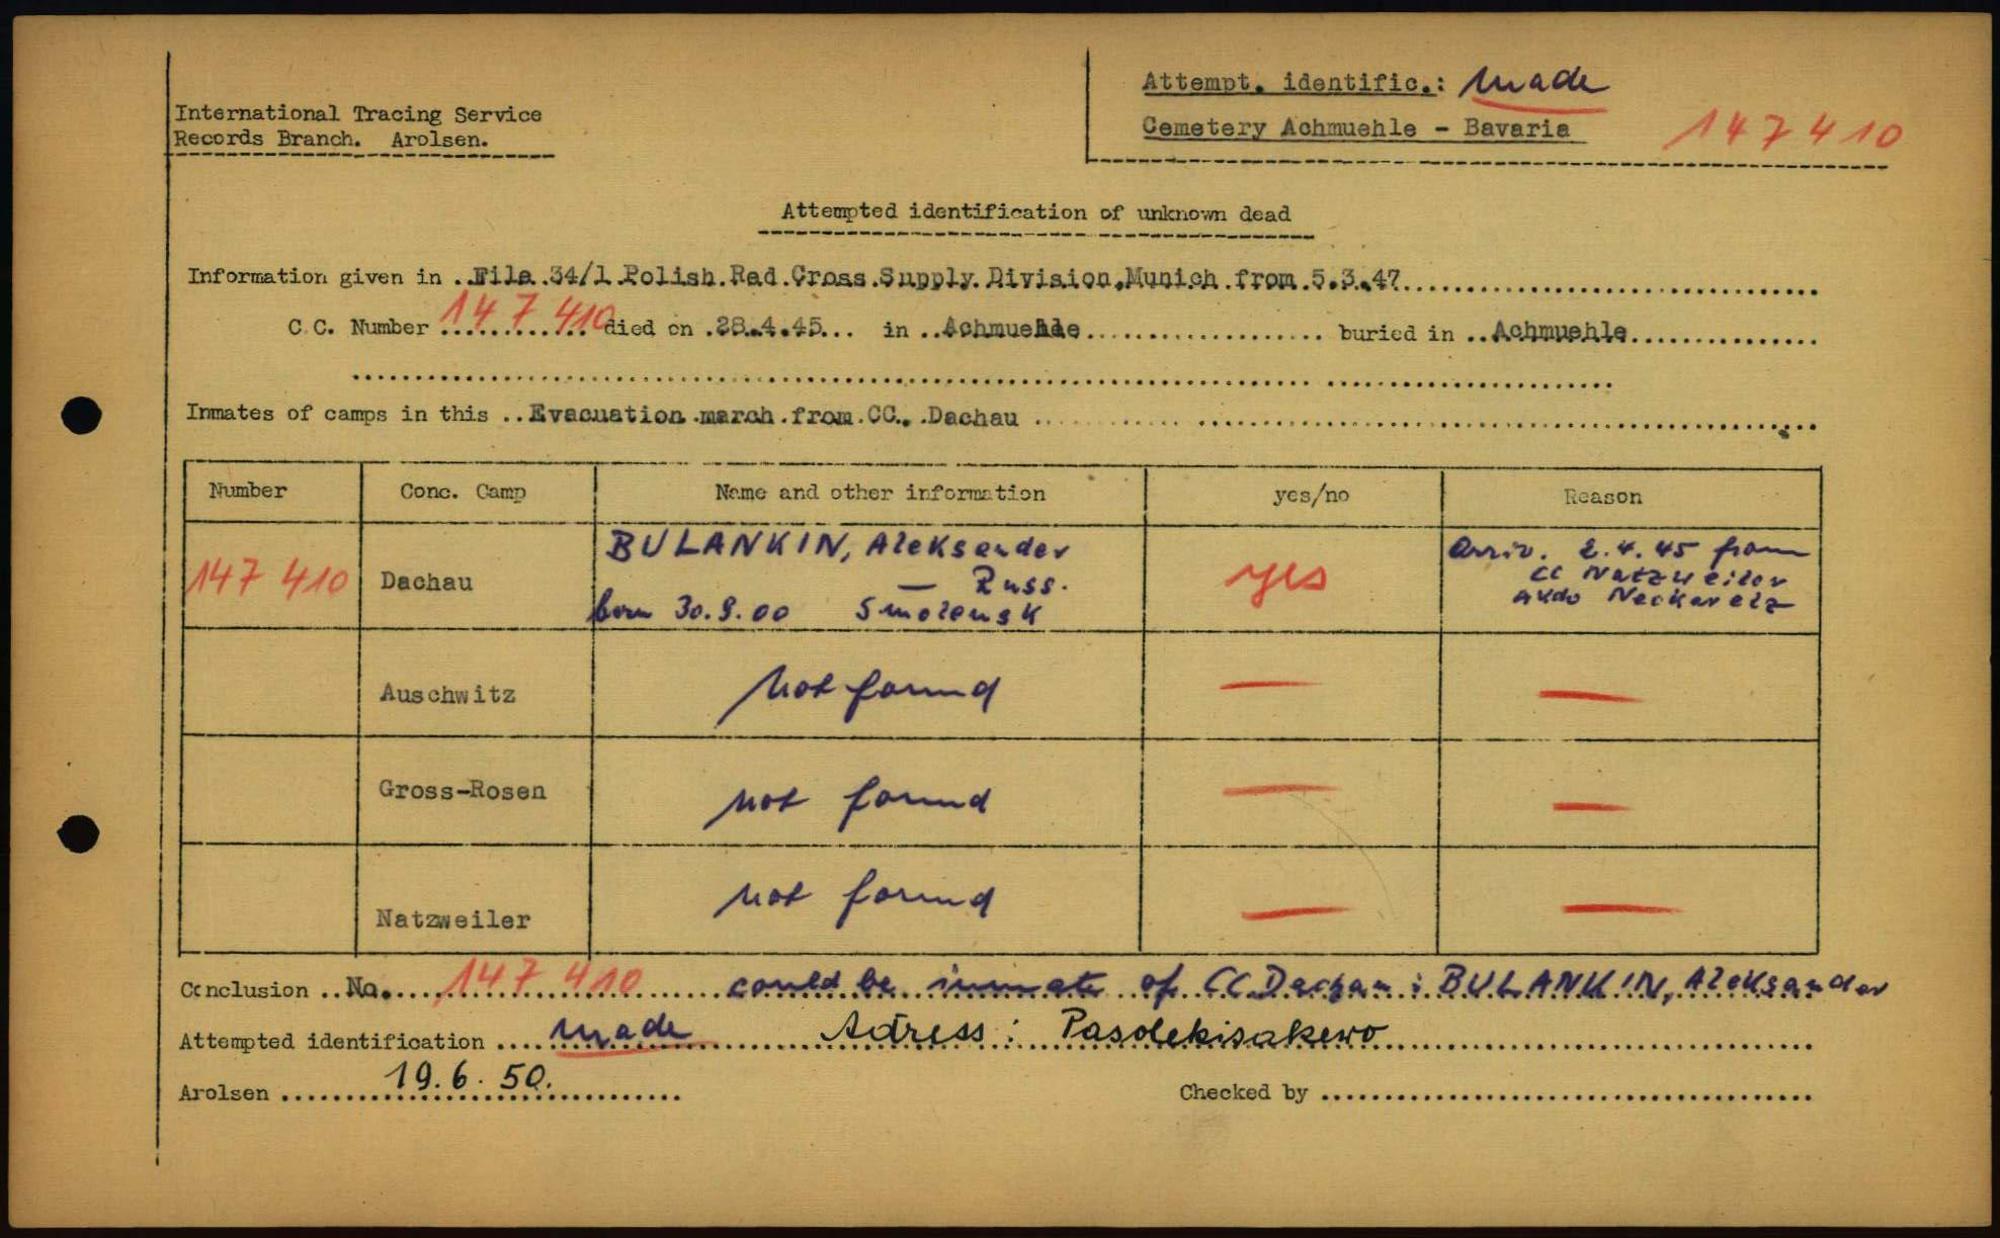 Attempt. identific.: made
International Tracing Service
Records Branch. Arolsen.
Cemetery Achmuehle - Bavaria 147410
Attempted identification of unknown dead
Information given in ..File.34/1.Polish.Red.Cross.Supply.Division,Munich.from.5.3.47
C.C. Number 147 410 died on .28.4.45... in ..Achmuehle buried in ..Achmuehle
Inmates of camps in this ..Evacuation.march.from.CC..Dachau
Number Conc. Camp Name and other information yes/no Reason
147 410 Dachau BULANKIN, Aleksander — Russ. born 30.9.00 Smolensk yes Arriv. 2.4.45 from CC Natzweiler Neckarelz
Auschwitz not found — —
Gross-Rosen not found — —
Natzweiler not found — —
Conclusion ..No. 147 410 could be inmate of CC Dachau : BULANKIN, Aleksander
Attempted identification made Adress : Pasolekisakewo
Arolsen 19.6.50.
Checked by